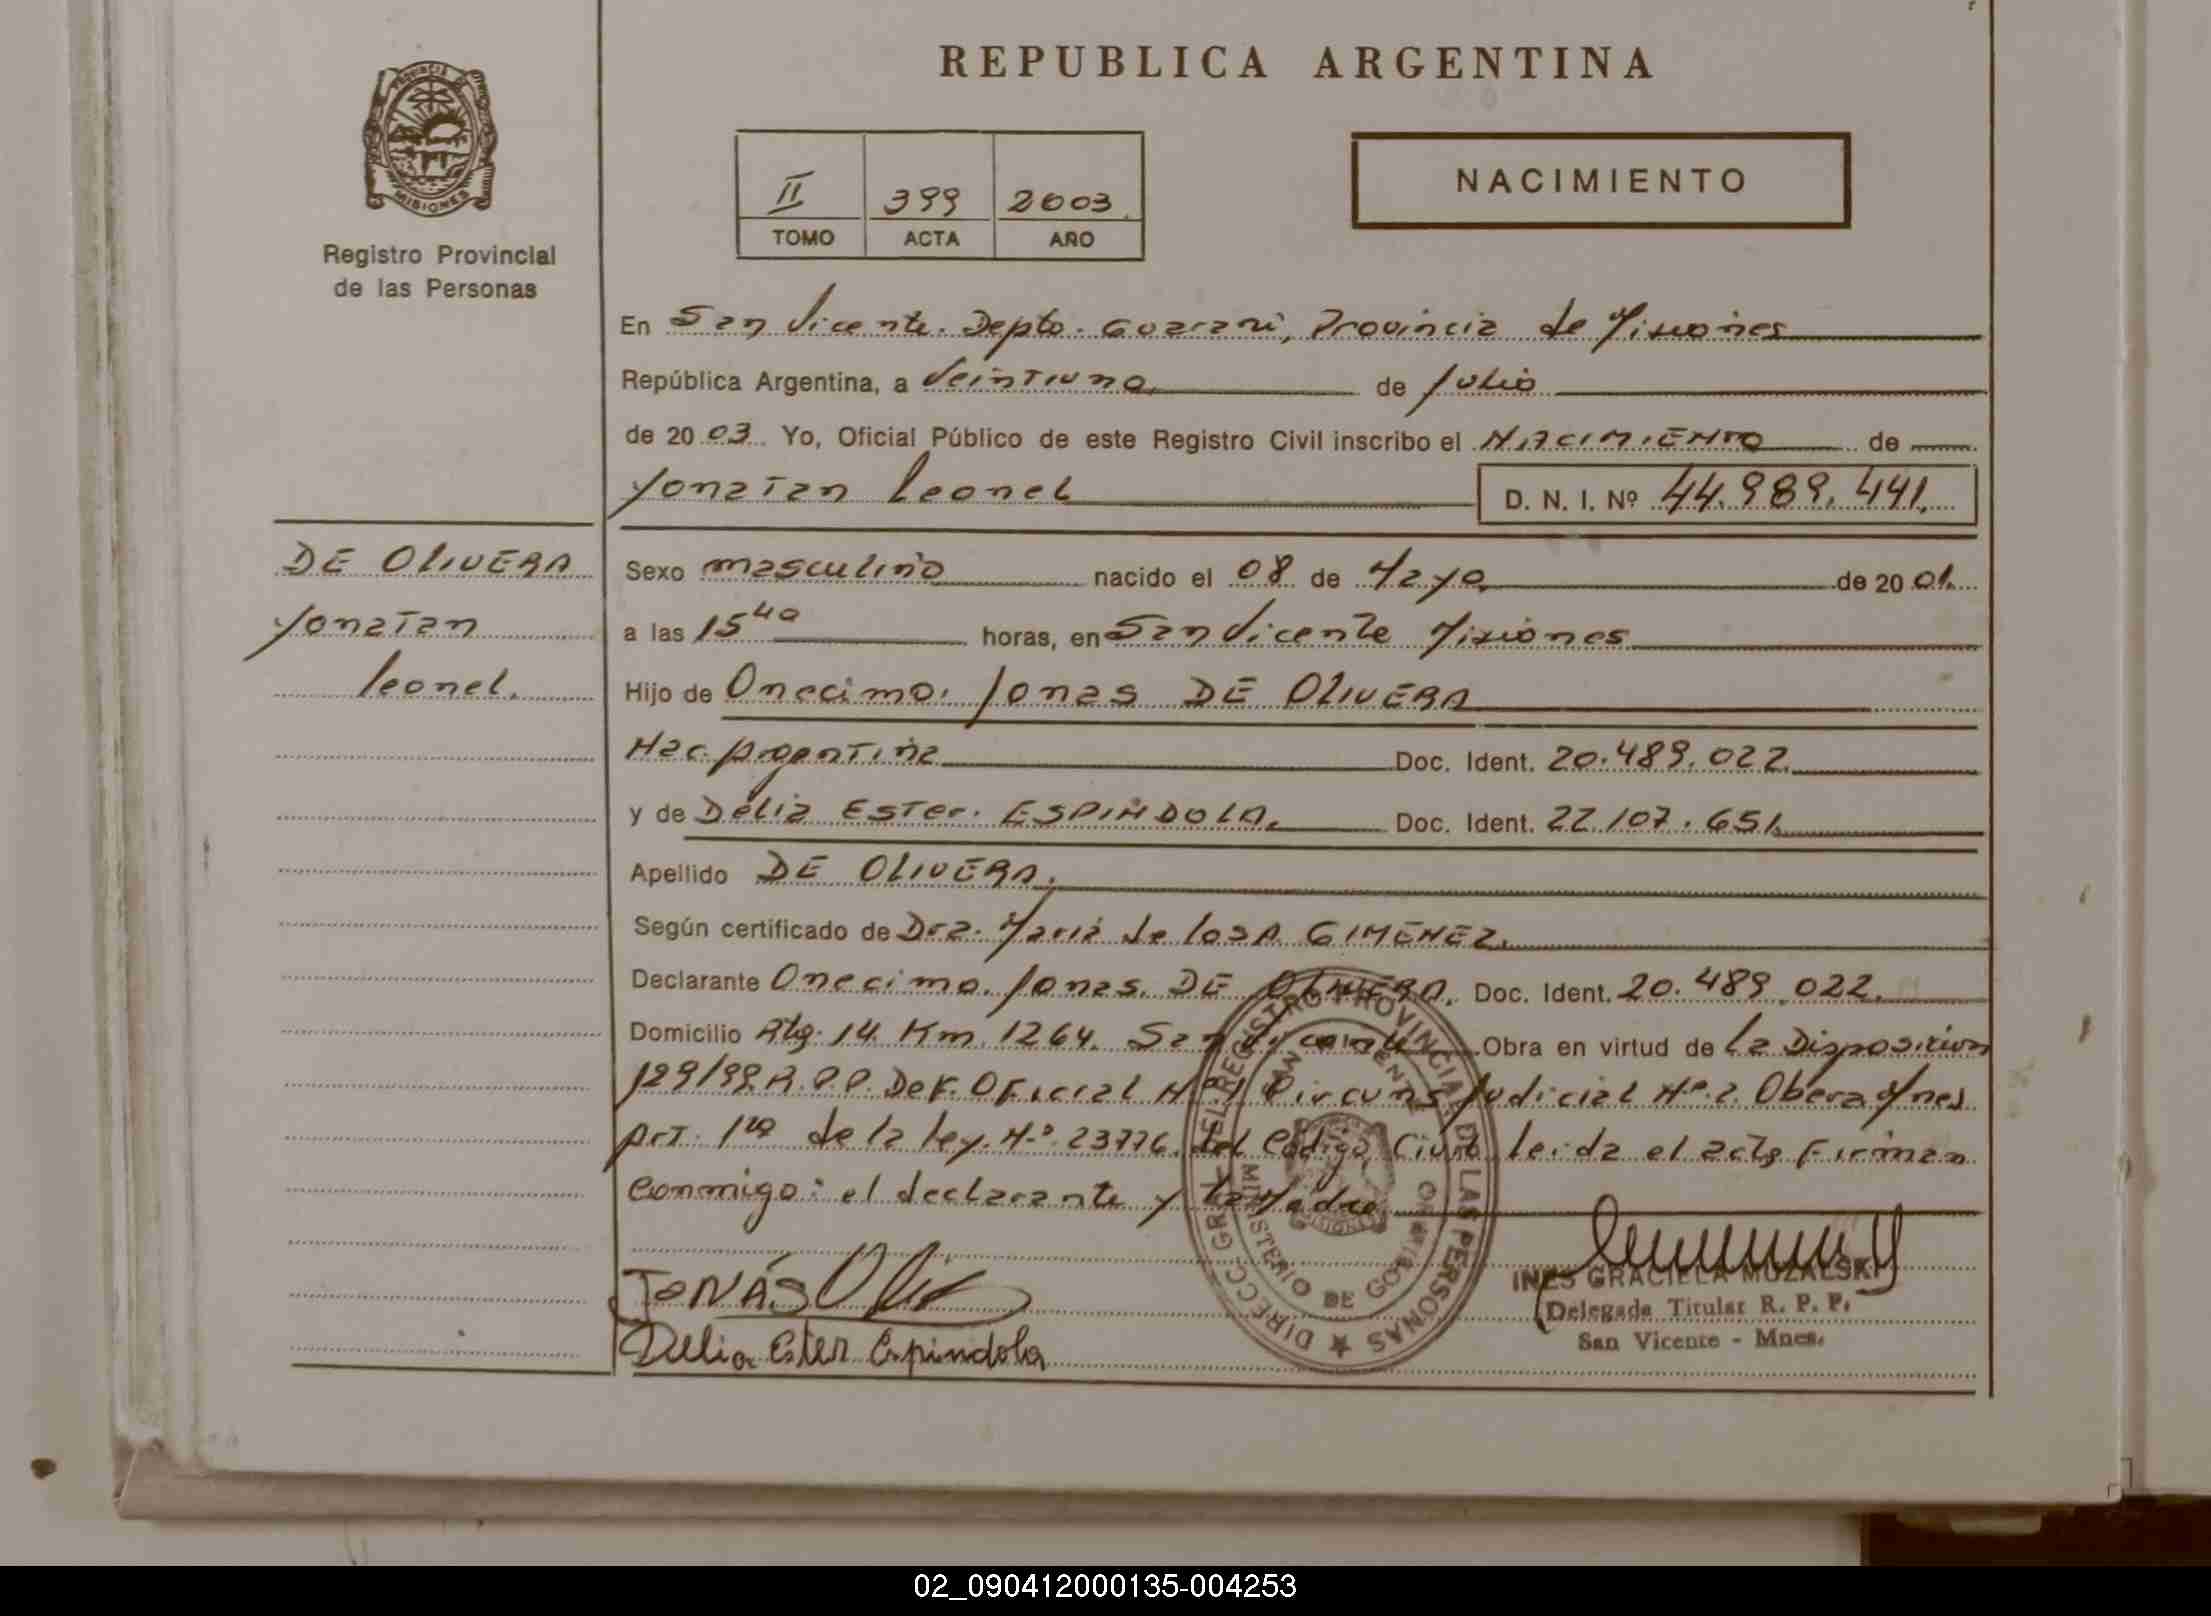 REPUBLICA ARGENTINA
PROVINCIA DE MISIONES
Registro Provincial
de las Personas
II 399 2003
TOMO ACTA AÑO
NACIMIENTO
En San Vicente. Depto. Guarani, Provincia de Misiones
República Argentina, a Veintiuno de Julio
de 20 03 Yo, Oficial Público de este Registro Civil inscribo el NACIMIENTO de
Yonatan Leonel D. N. I. Nº 44.989.441.
DE OLIVERA
Yonatan
Leonel.
Sexo masculino nacido el 08 de Mayo de 20 01.
a las 15 40 horas, en San Vicente Misiones
Hijo de Onecimo. Jonas DE OLIVERA
Nac. Argentina Doc. Ident. 20.489.022.
y de Delia Ester. ESPINDOLA. Doc. Ident. 22.107.651.
Apellido DE OLIVERA.
Según certificado de Dra. Maria de losA GIMENEZ.
Declarante Onecimo. Jonas. DE OLIVERA. Doc. Ident. 20.489.022.
Domicilio Rta. 14. Km. 1264. San Vicente Obra en virtud de La Disposicion
129/99. R.P.P. Def. Oficial Nº 1 Circuns Judicial Nº. 2. Obera Mnes
Art. 1ro de la ley. Nº. 23776. del Codigo Civil. leida el acta Firman
Conmigo: el declarante y la Madre
JONÁS Oliv
Delia Ester Espindola
DIRECC. GRAL. DEL REGISTRO PROVINCIAL DE LAS PERSONAS
SAN VICENTE
MINISTERIO DE GOBIERNO
MISIONES
INES GRACIELA MUZALSKI
Delegada Titular R. P. P.
San Vicente - Mnes.
02_090412000135-004253